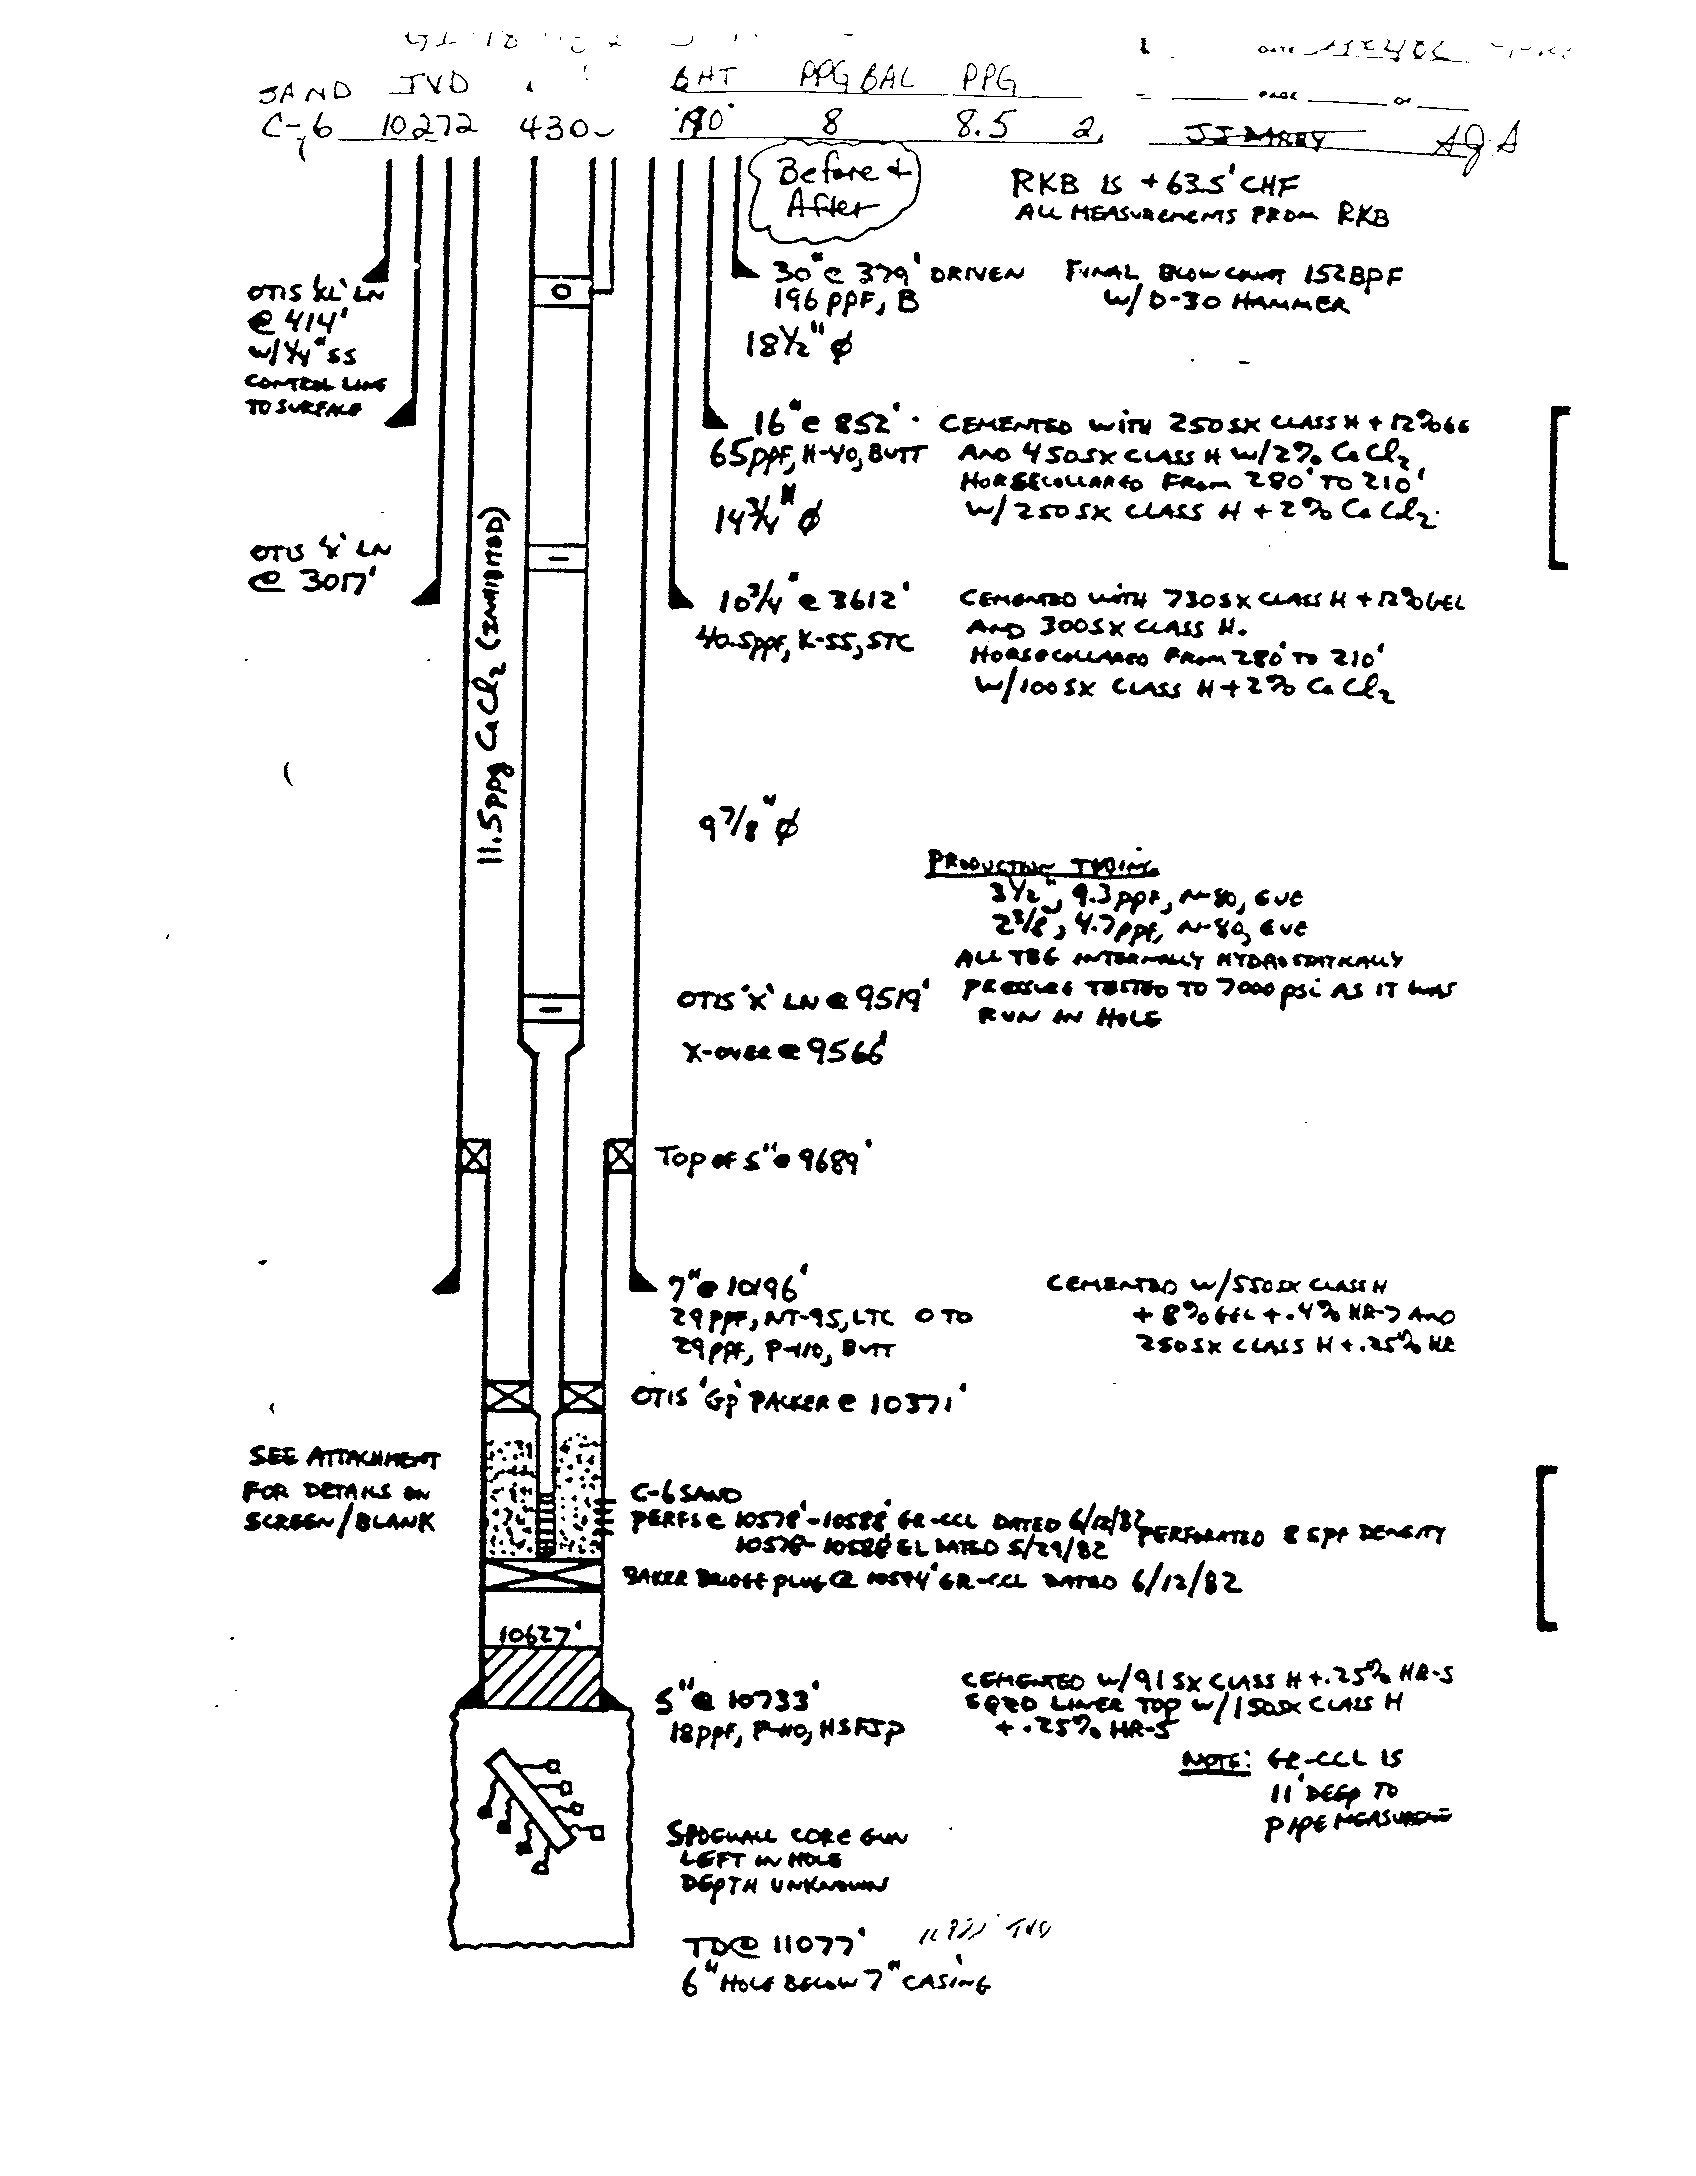 SAND TVD BHT PPG BAL PPG
C-6 10272 190° 8 8.5
DATE
PAGE OF
JJ DARBY AJA
Before &
After
RKB IS +63.5' CHF
ALL MEASUREMENTS FROM RKB
30" @ 379' DRIVEN FINAL BLOW COUNT 152 BPF
196 PPF, B W/ D-30 HAMMER
OTIS 'XL' LN
@ 414'
W/ 1/4" SS
CONTROL LINE
TO SURFACE
18 1/2" Ø
16" @ 852' CEMENTED WITH 250 SX CLASS H + 12% GEL
65 ppf, H-40, BUTT AND 450 SX CLASS H W/ 2% CaCl2
HORSECOLLARED FROM 280' TO 210'
W/ 250 SX CLASS H + 2% CaCl2
14 3/4" Ø
11.5 ppg CaCl2 (INHIBITED)
OTIS 'X' LN
@ 3017'
10 3/4" @ 3612' CEMENTED WITH 730 SX CLASS H + 12% GEL
40.5 ppf, K-55, STC AND 300 SX CLASS H.
HORSECOLLARED FROM 280' TO 210'
W/ 100 SX CLASS H + 2% CaCl2
9 7/8" Ø
PRODUCTION TUBING
3 1/2", 9.3 ppf, N-80, EUE
2 3/8", 4.7 ppf, N-80, EUE
ALL TBG INTERNALLY HYDROSTATICALLY
PRESSURE TESTED TO 7000 psi AS IT WAS
RUN IN HOLE
OTIS 'X' LN @ 9519'
X-OVER @ 9566'
TOP OF 5" @ 9689'
7" @ 10196' CEMENTED W/ 550 SX CLASS H
29 PPF, NT-95, LTC 0 TO + 8% GEL + .4% HR-7 AND
29 ppf, P-110, BUTT 250 SX CLASS H + .25% HR
OTIS 'GP' PACKER @ 10371'
SEE ATTACHMENT
FOR DETAILS ON
SCREEN/BLANK
C-6 SAND
PERFS @ 10578'-10588' GR-CCL DATED 6/12/82 PERFORATED 8 SPF DENSITY
10578-10588' EL DATED 5/29/82
BAKER BRIDGE PLUG @ 10594' GR-CCL DATED 6/12/82
10627'
5" @ 10733' CEMENTED W/ 91 SX CLASS H + .25% HR-5
18 ppf, P-110, HSFJP SQZD LINER TOP W/ 150 SX CLASS H
+ .25% HR-5
NOTE: GR-CCL IS
11' DEEP TO
PIPE MEASUREMENT
SIDEWALL CORE GUN
LEFT IN HOLE
DEPTH UNKNOWN
TD @ 11077' TVD
6" HOLE BELOW 7" CASING